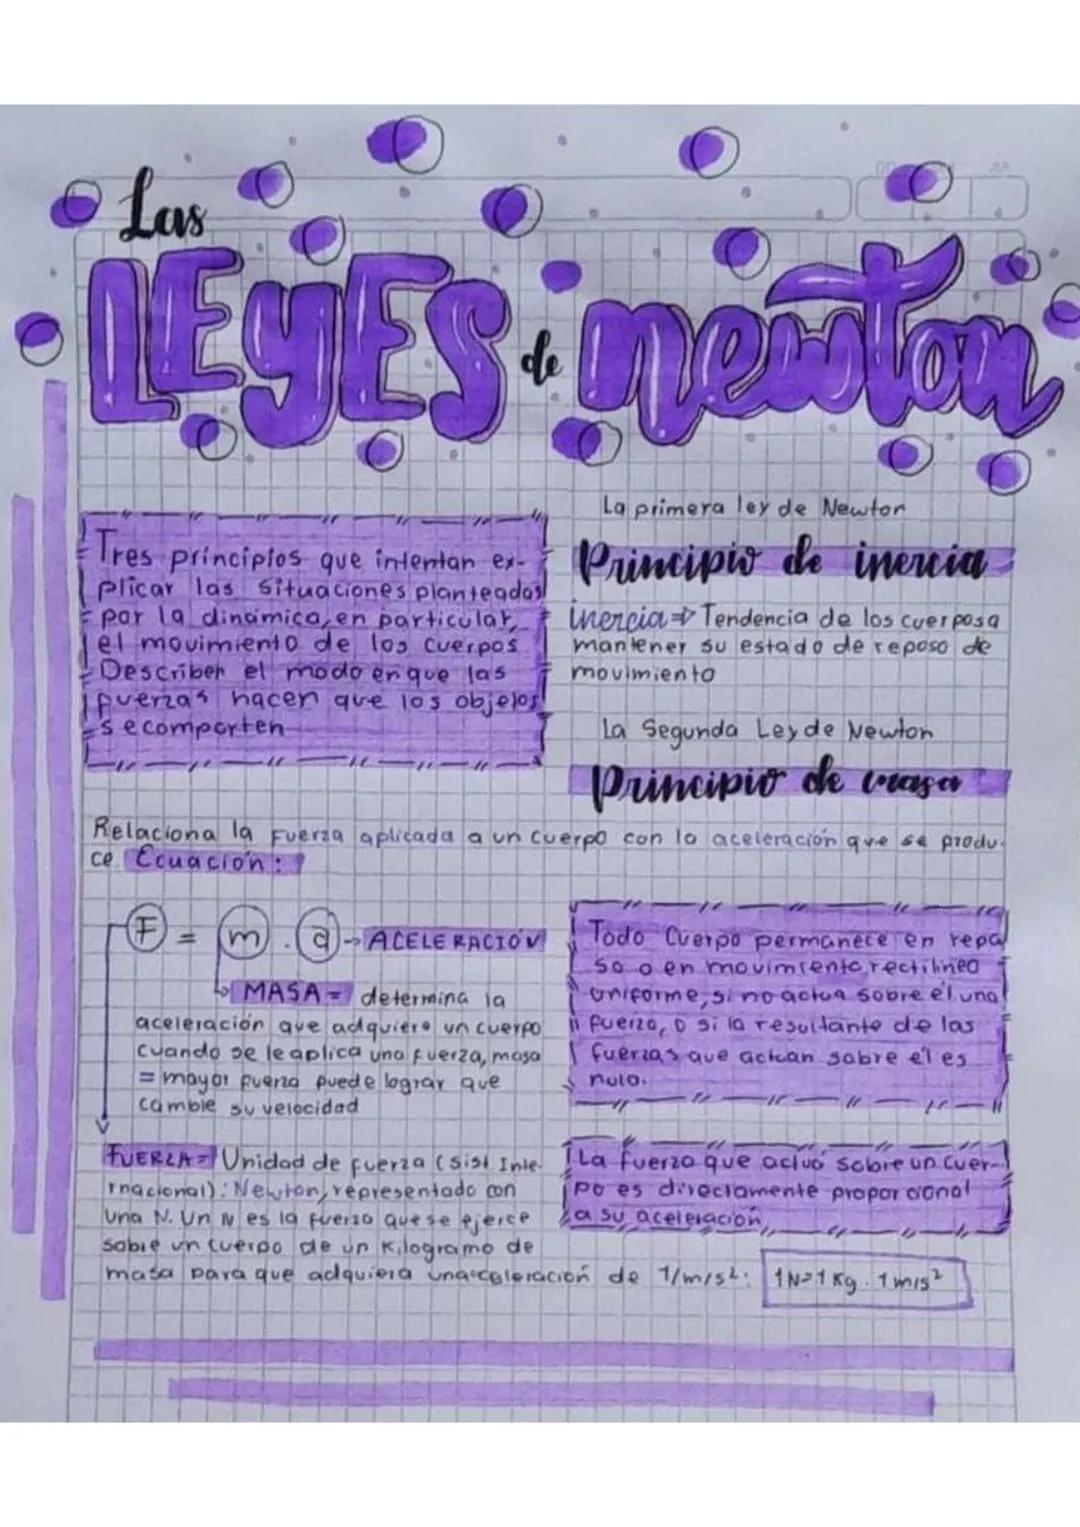 Las
LEyES de newton
Tres principios que intentan ex-
plicar las situaciones planteadas
por la dinámica, en particular,
el movimiento de los cuerpos
Describen el modo en que las
fuerzas hacen que los objetos
se comporten
La primera ley de Newton
Principio de inercia
inercia ⇒ Tendencia de los cuerpos a
mantener su estado de reposo de
movimiento
La Segunda Ley de Newton
Principio de masa
Relaciona la fuerza aplicada a un cuerpo con la aceleración que se produ-
ce. Ecuación:
F = m . a → ACELERACIÓN
MASA = determina la
aceleración que adquiere un cuerpo
cuando se le aplica una fuerza, masa
= mayor fuerza puede lograr que
cambie su velocidad
Todo Cuerpo permanece en repo
so o en movimiento rectilíneo
uniforme, si no actua sobre él una
fuerza, o si la resultante de las
fuerzas que actúan sobre él es
nula.
FUERZA = Unidad de fuerza (sist Inte-
rnacional): Newton, representado con
una N. Un N es la fuerza que se ejerce
sobre un cuerpo de un Kilogramo de
masa para que adquiera una aceleración de 1/m/s²:
La fuerza que actua sobre un cuer-
po es directamente proporcional
a su aceleración,
1N→1 Kg . 1 m/s²